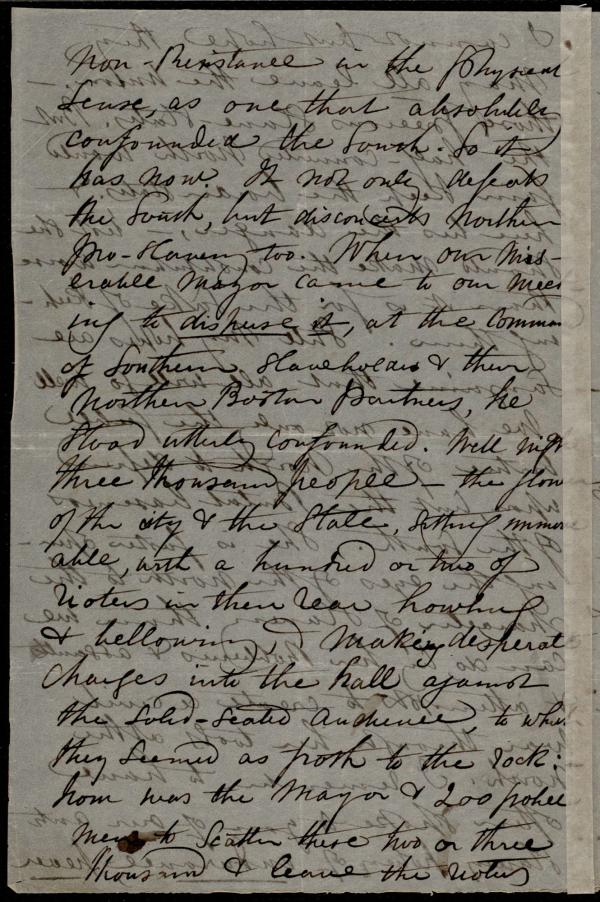 Non-Resistance in the physical
sense, as one that absolutely
confounded the South. So it
has now. It not only defeats
the South, but disconcerts northern
pro-slavery too. When our mis-
erable Mayor came to our meet
ing to disperse it, at the comman
of Southern slaveholders & their
Northern Boston Partners, he
stood utterly confounded. Well nigh
three thousand people — the flow
of the city & the State, sitting immov
able, with a hundred or two of
rioters in their rear howling
& bellowing, & making desperat
charges into the hall against
the solid-seated audience, to whic
they seemed as froth to the rock:
how was the Mayor & 200 police
men to scatter these two or three
thousand & leave the rioters